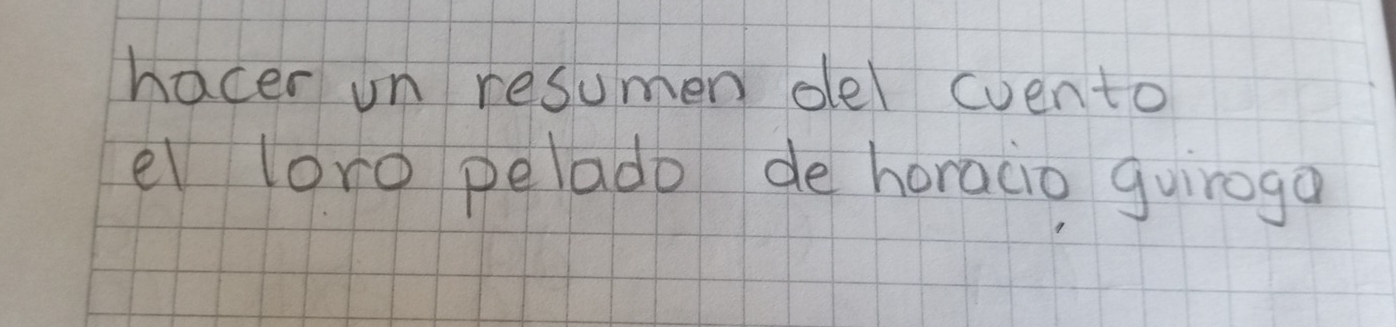 hacer un resumen del cuento
el loro pelado de horacio quiroga